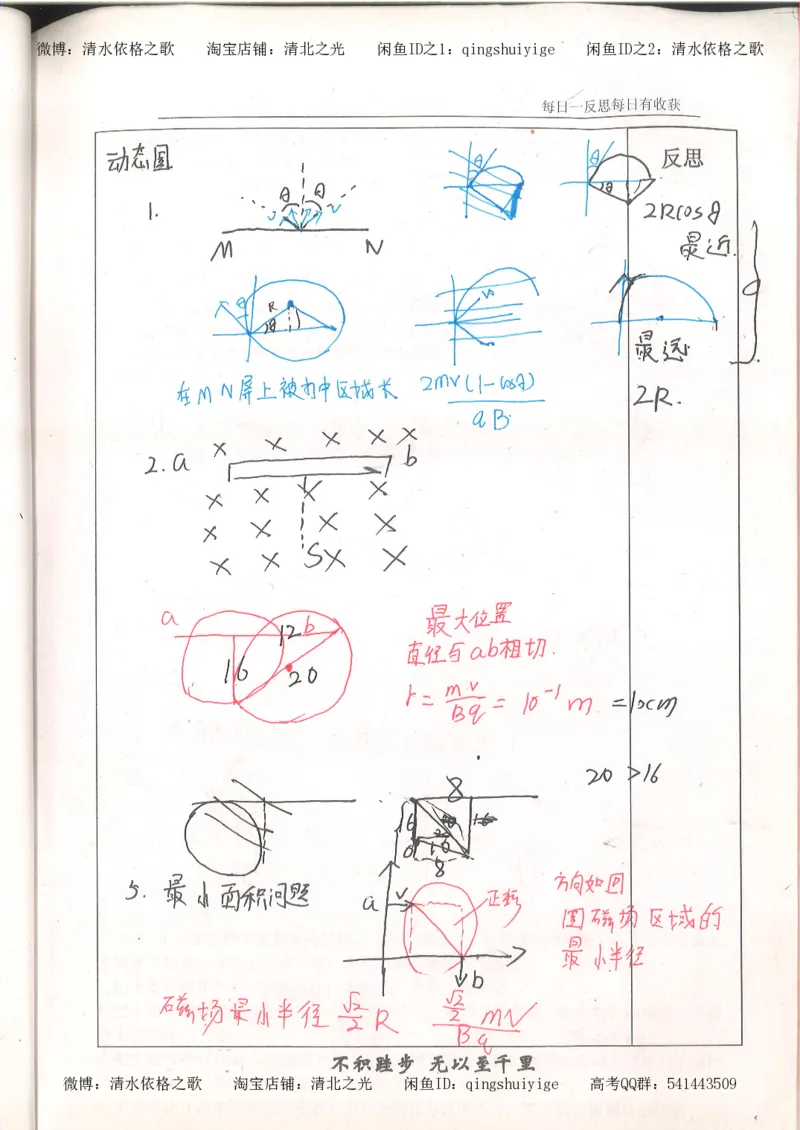 微博：清水依格之歌 淘宝店铺：清北之光 闲鱼ID之1：qingshuiyige 闲鱼ID之2：清水依格之歌
每日一反思每日有收获
动态图
反思
1.
θ θ
v v
M N
θ
θ
θ
2Rcosθ
最近
θ
R
θ
v
最远
2R.
在MN屏上被打中区域长 2mv(1-cosθ)
qB
2. a × × × × × b
× × × ×
× × × ×
× × S× ×
a 12 b
16
20
最大位置
直径与ab相切.
r = mv/Bq = 10⁻¹ m = 10cm
20 > 16
8
16
8
5. 最小面积问题
a v
正移
b
方向如图
圆磁场区域的
最小半径
磁场最小半径 √2/2 R
√2/2 mV
Bq
不积跬步 无以至千里
微博：清水依格之歌 淘宝店铺：清北之光 闲鱼ID：qingshuiyige 高考QQ群：541443509